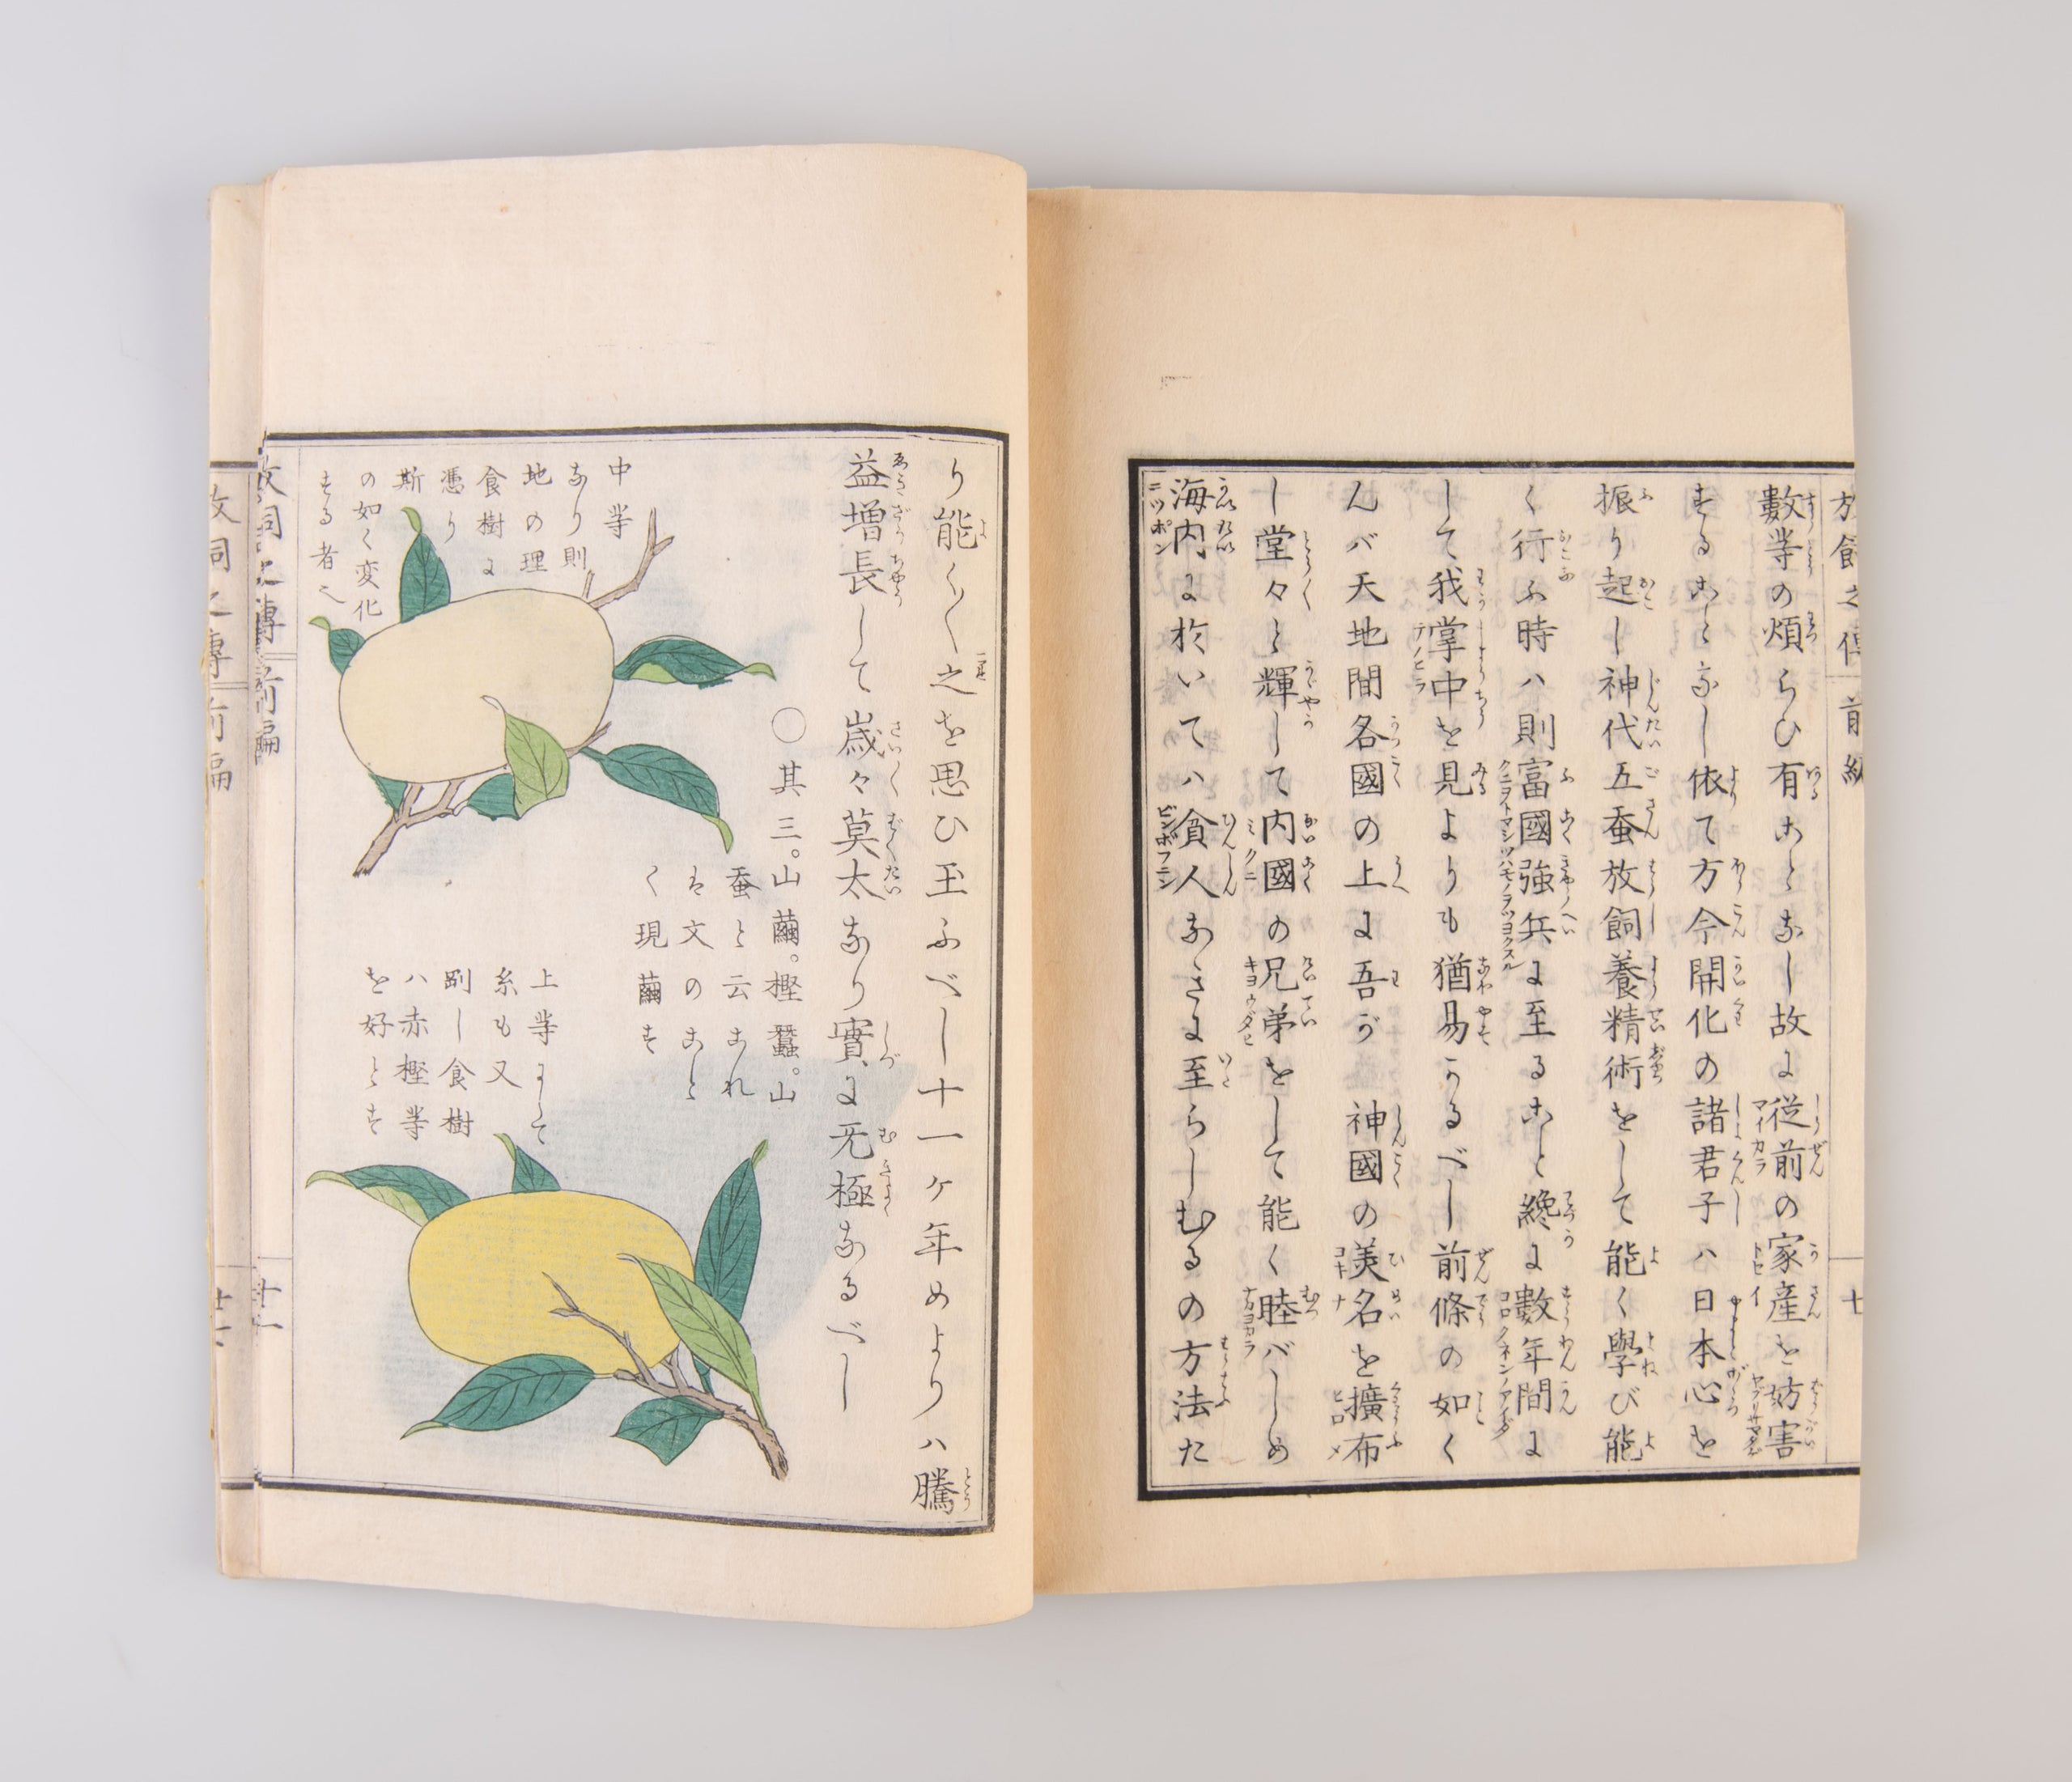 放飼之傳 前編
十
數等の煩らひ有ことなし故に従前の家産を妨害
することなし依て方今開化の諸君子ハ日本心を
振り起し神代五蚕放飼養精術をして能く學び能
く行ふ時ハ則富國強兵に至ること纔に數年間に
して我掌中を見よりも猶易かるべし前條の如く
んバ天地間各國の上に吾が神國の美名を擴布
し堂々と輝して内國の兄弟をして能く睦バしめ
海内に於いてハ貧人なきに至らしむるの方法た
り能く〱之を思ひ玉ふべし十一ヶ年めよりハ騰
益増長して歳々莫太なり實に无極なるべし
〇其三。山繭。樫蠶。山
蚕と云これ
は文のこと
く現繭す
中等
なり則
地の理
食樹に
憑り
斯
の如く変化
する者也
上等にして
糸も又
剛し食樹
ハ赤樫等
を好とす
放飼之傳 前編
十一